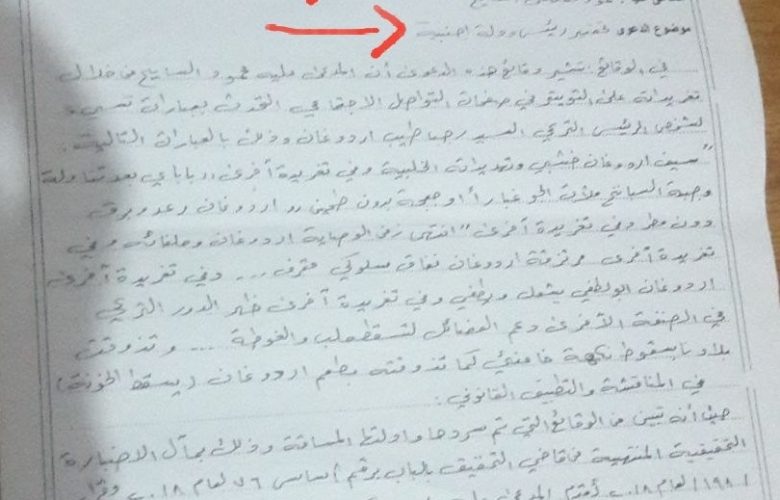 موضوع الدعوى تحقير رئيس دولة اجنبية
في الوقائع: تشير وقائع هذه الدعوى أن المدعى عليه محمود السايح من خلال
تغريدات على التويتر في صفحات التواصل الاجتماعي التحدث بعبارات تسيء
لشخص الرئيس التركي السيد رجب طيب اردوغان وذلك بالعبارات التالية.
"سيف اردوغان خشبي وتهديداته الخلبية وفي تغريدة أخرى بعد تناوله
وجبة السبانخ ملأت الجو غباراً وجعجعة بدون طحين اردوغان رعد وبرق
دون مطر وفي تغريدة أخرى "انتهى زمن الوصاية اردوغان وحلفائه وفي
تغريدة أخرى مرتزقة اردوغان نفاق سلوكي مقرف ... وفي تغريدة أخرى
اردوغان ابو لطفي يشعل ويطفي وفي تغريدة أخرى ظهر الدور التركي
في الصفقة الأخرى دعم الفصائل لتسقط حلب والغوطة ... وتذوقت
بلادنا بسقوط نكهة خامنئي كما تذوقته بطعم اردوغان (يسقط الخونة)
في المناقشة والتطبيق القانوني:
حيث أنه تبين من الوقائع التي تم سردها وأدلتها المساقة وذلك بمآل الاضبارة
التحقيقية المنتهية من قاضي التحقيق بالباب برقم أساسي ٧٦ لعام ٢٠١٨